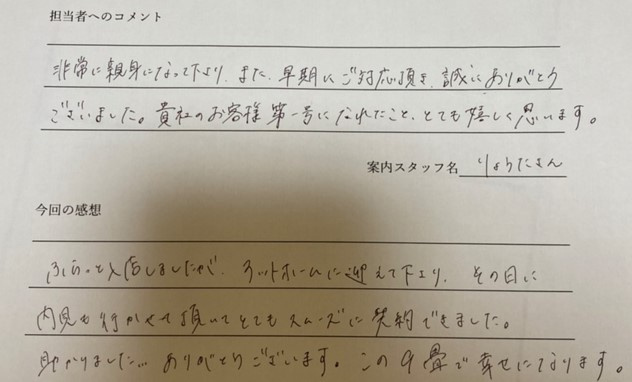 担当者へのコメント
非常に親身になって下さり、また、早期にご対応頂き、誠にありがとう
ございました。貴社のお客様第一号になれたこと、とても嬉しく思います。
案内スタッフ名 りょうたさん
今回の感想
ふらっと入店しましたが、アットホームに迎えて下さり、その日に
内見も行かせて頂いてとてもスムーズに契約できました。
助かりました… ありがとうございます。この9畳で幸せになります。